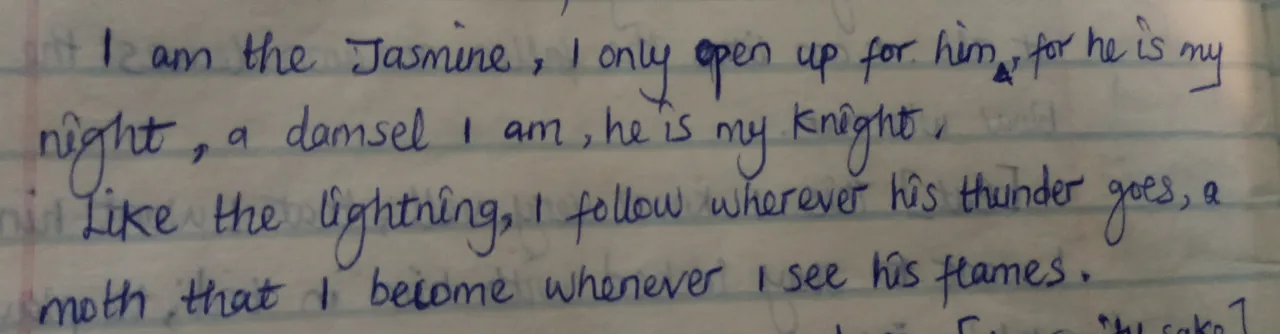 I am the Jasmine, I only open up for him, for he is my
night, a damsel I am, he is my knight,
Like the lightning, I follow wherever his thunder goes, a
moth that I become whenever I see his flames.